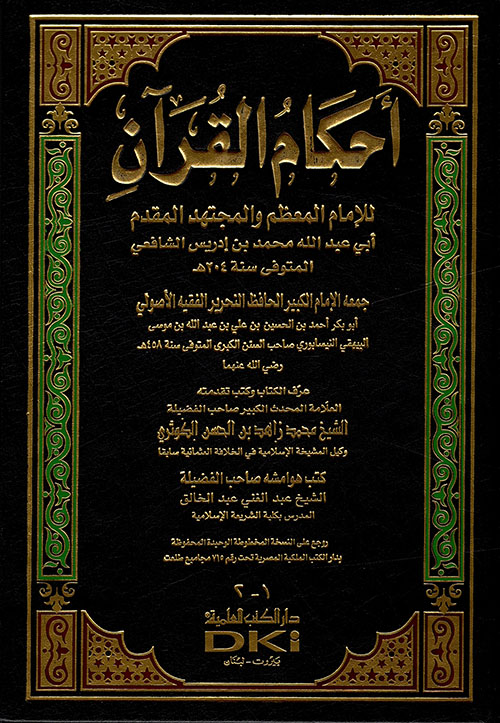 أَحكَامُ القُرآنِ
للإمام المعظم والمجتهد المقدم
أبي عبد الله محمد بن إدريس الشافعي
المتوفى سنة ٢٠٤هـ
جمعه الإمام الكبير الحافظ النحرير الفقيه الأصولي
أبو بكر أحمد بن الحسين بن علي بن عبد الله بن موسى
البيهقي النيسابوري صاحب السنن الكبرى المتوفى سنة ٤٥٨هـ
رضي الله عنهما
عرّف الكتاب وكتب تقدمته
العلّامة المحدث الكبير صاحب الفضيلة
الشيخ محمد زاهد بن الحسن الكوثري
وكيل المشيخة الإسلامية في الخلافة العثمانية سابقا
كتب هوامشه صاحب الفضيلة
الشيخ عبد الغني عبد الخالق
المدرس بكلية الشريعة الإسلامية
روجع على النسخة المخطوطة الوحيدة المحفوظة
بدار الكتب الملكية المصرية تحت رقم ٧١٥ مجاميع طلعت
١ - ٢
دار الكتب العلمية
DKi
بيروت - لبنان